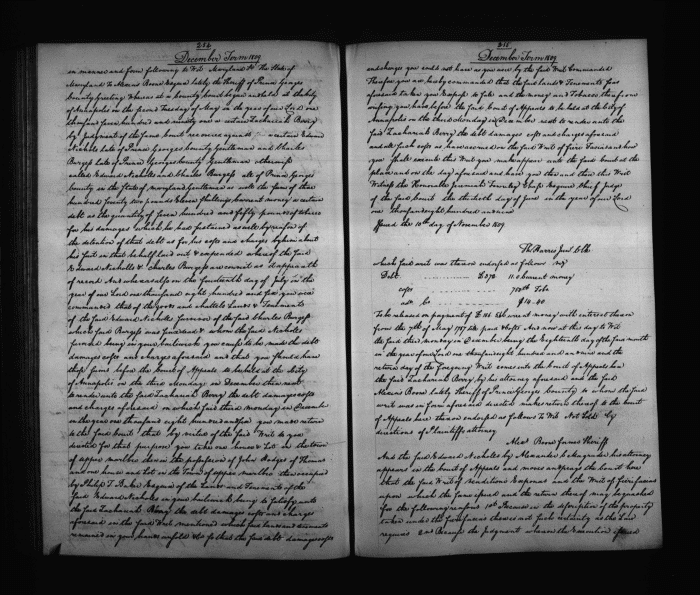 214
December Term 1809
in manner and form following to Wit Maryland Sc The State of
Maryland To Alexius Boone Esquire lately Sheriff of Prince Georges
County Greeting Whereas at a County Court begun and held at the City
of Annapolis on the second Tuesday of May in the year of our Lord one
thousand seven hundred and ninety one a certain Zachariah Berry
by Judgment of the said Court recovered against a certain Edward
Nicholls late of Prince Georges County Gentleman and Charles
Burgess late of Prince Georges County Gentleman otherwise
called Edward Nicholls and Charles Burgess of Prince Georges
County in the State of Maryland Gentlemen as well the sum of
hundred Seventy two pounds Eleven Shillings current money a certain
debt as the quantity of seven hundred and fifty pounds of tobacco
for his damages which he had sustained as well by reason of
the detention of that debt as for his costs and charges by him about
his Suit in that behalf laid out & expended whereof the said
Edward Nicholls & Charles Burgess are convict as it appears to us
of record And whereas also on the fourteenth day of July in the
year of our Lord one thousand eight hundred and you were
commanded that of the goods and chattels Lands & Tenements
of the said Edward Nicholls Survivor of the said Charles Burgess
which said Burgess was since dead & whom the said Nicholls
survived being in your bailiwick you cause to be made the debt
damages costs and charges aforesaid and that you should have
those sums before the Court of Appeals to be held at the City
of Annapolis on the third Monday in December then next
to render unto the said Zachariah Berry the debt damages costs
and charges aforesaid on which said third Monday in December
in the year one thousand eight hundred and you made return
to the said Court that by virtue of the said Writ to you
directed for that purpose you take one house & Lot in the town
of upper marlbro then in the possession of John Hodges of Thomas
and one house and Lot in the Town of upper marlbro then occupied
by Philip T. Baker Esquire of the Lands and Tenements of the
said Edward Nicholls in your bailiwick being to satisfy unto
the said Zachariah Berry the debt damages costs and charges
aforesaid in the said Writ mentioned which said houses and tenements
remained in your hands unsold &c so that the said debt damages costs
215
December Term 1809
and charges you could not have as you were by the said Writ Commanded
Therefore you are hereby commanded that the said Lands & Tenements so as
aforesaid taken you Expose to Sale and the money and Tobacco therefrom
arising you have before the said Court of Appeals to be held at the City of
Annapolis on the third Monday in December next to render unto the
said Zachariah Berry the debt damages costs and charges aforesaid
and all such costs as have accrued on the said Writ of fieri facias and how
you shall execute this Writ you make appear unto the said Court at the
place and on the day aforesaid and have you then and there this Writ
Witness the Honorable Jeremiah Townley Chase Esquire Chief Judge
of the said Court the thirtieth day of June in the year of our Lord
one thousand eight hundred and nine
Issued the 10th day of November 1809
Th Harris Junr Clk
which said writ was thereon endorsed as follows viz
Debt £272 11.0 Current money
costs 750 lb Toba
adl Co $14.40
To be released on payment of £136 current money with interest thereon
from the 7th of May 1787 till paid & costs And now at this day to Wit
the said third Monday in December being the Eighteenth day of the said month
in the year of our Lord one thousand eight hundred and nine and the
return day of the foregoing Writ comes into the Court of Appeals here
the said Zachariah Berry by his attorney aforesaid and the said
Alexius Boone lately Sheriff of Prince Georges County to whom the said
writ was in form aforesaid directed makes return thereof to the Court
of Appeals here thereon endorsed as follows To Wit Not Sold by
directions of Plaintiffs attorney
Alexs Boone former Sheriff
And the said Edward Nicholls by Alexander C Magruder his attorney
appears in the Court of Appeals and moves and prays the Court here
that the said Writ of Venditioni Exponas and the Writ of Fieri facias
upon which the same issued and the return thereof may be quashed
for the following reasons 1st Because in the description of the property
taken under the Fieri facias there is not such certainty as the Law
requires 2nd Because the Judgment whereon the Execution issued